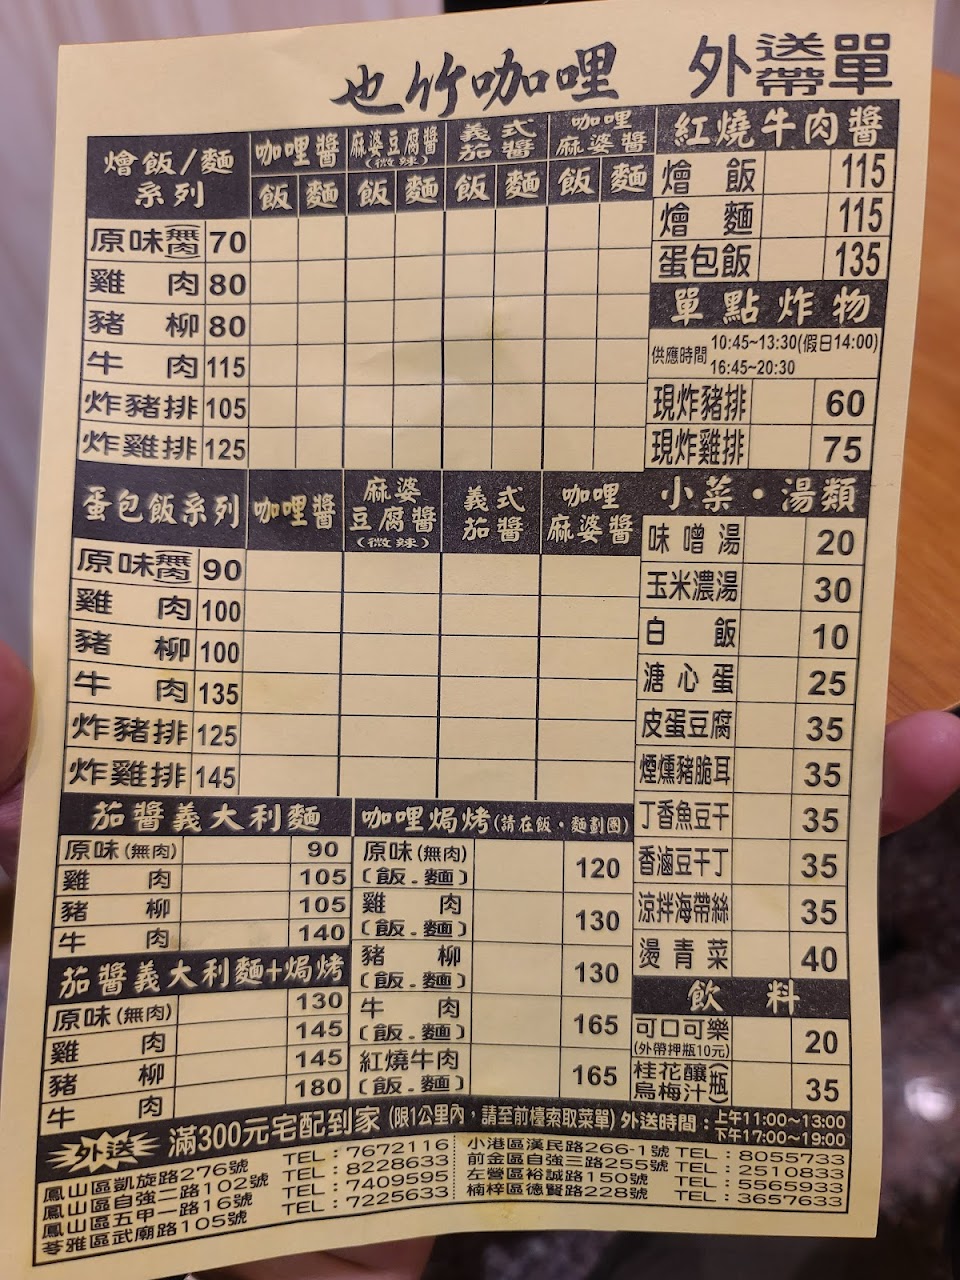 也竹咖哩 外送帶單
燴飯/麵系列 咖哩醬 麻婆豆腐醬(微辣) 義式茄醬 咖哩麻婆醬
飯 麵 飯 麵 飯 麵 飯 麵
原味無肉 70
雞肉 80
豬柳 80
牛肉 115
炸豬排 105
炸雞排 125
紅燒牛肉醬
燴飯 115
燴麵 115
蛋包飯 135
單點炸物
供應時間 10:45~13:30(假日14:00)
16:45~20:30
現炸豬排 60
現炸雞排 75
蛋包飯系列 咖哩醬 麻婆豆腐醬(微辣) 義式茄醬 咖哩麻婆醬
原味無肉 90
雞肉 100
豬柳 100
牛肉 135
炸豬排 125
炸雞排 145
小菜·湯類
味噌湯 20
玉米濃湯 30
白飯 10
溏心蛋 25
皮蛋豆腐 35
煙燻豬脆耳 35
丁香魚豆干 35
香滷豆干丁 35
涼拌海帶絲 35
燙青菜 40
茄醬義大利麵
原味(無肉) 90
雞肉 105
豬柳 105
牛肉 140
茄醬義大利麵+焗烤
原味(無肉) 130
雞肉 145
豬柳 145
牛肉 180
咖哩焗烤(請在飯·麵劃圈)
原味(無肉)
(飯.麵) 120
雞肉
(飯.麵) 130
豬柳
(飯.麵) 130
牛肉
(飯.麵) 165
紅燒牛肉
(飯.麵) 165
飲料
可口可樂
(外帶押瓶10元) 20
桂花釀
烏梅汁(瓶) 35
外送 滿300元宅配到家 (限1公里內,請至前檯索取菜單) 外送時間:上午11:00~13:00
下午17:00~19:00
鳳山區凱旋路276號 TEL:7672116
鳳山區自強二路102號 TEL:8228633
鳳山區五甲一路16號 TEL:7409595
苓雅區武廟路105號 TEL:7225633
小港區漢民路266-1號 TEL:8055733
前金區自強三路255號 TEL:2510833
左營區裕誠路150號 TEL:5565933
楠梓區德賢路228號 TEL:3657633